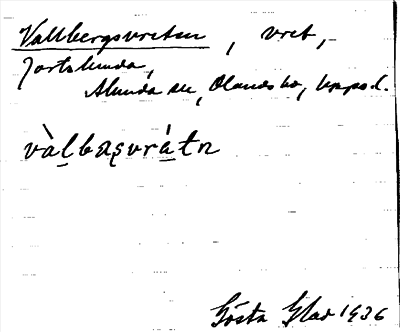 Vallbergsvreten, vret,
Jortslunda,
Alunda sn, Olands hd, Upps. l.
vàlbæs̨vrátn
Gösta Glad 1936